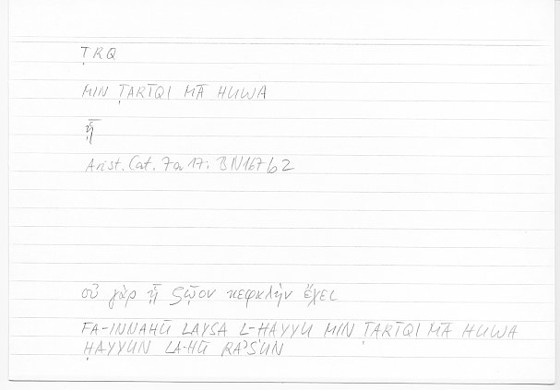 ṬRQ
MIN ṬARĪQI MĀ HUWA
ᾗ
Arist. Cat. 7a 17: BN167 b2
οὐ γὰρ ᾗ ζῷον κεφαλὴν ἔχει
FA-INNAHŪ LAYSA L-ḤAYYU MIN ṬARĪQI MĀ HUWA
ḤAYYUN LA-HŪ RAʾSUN